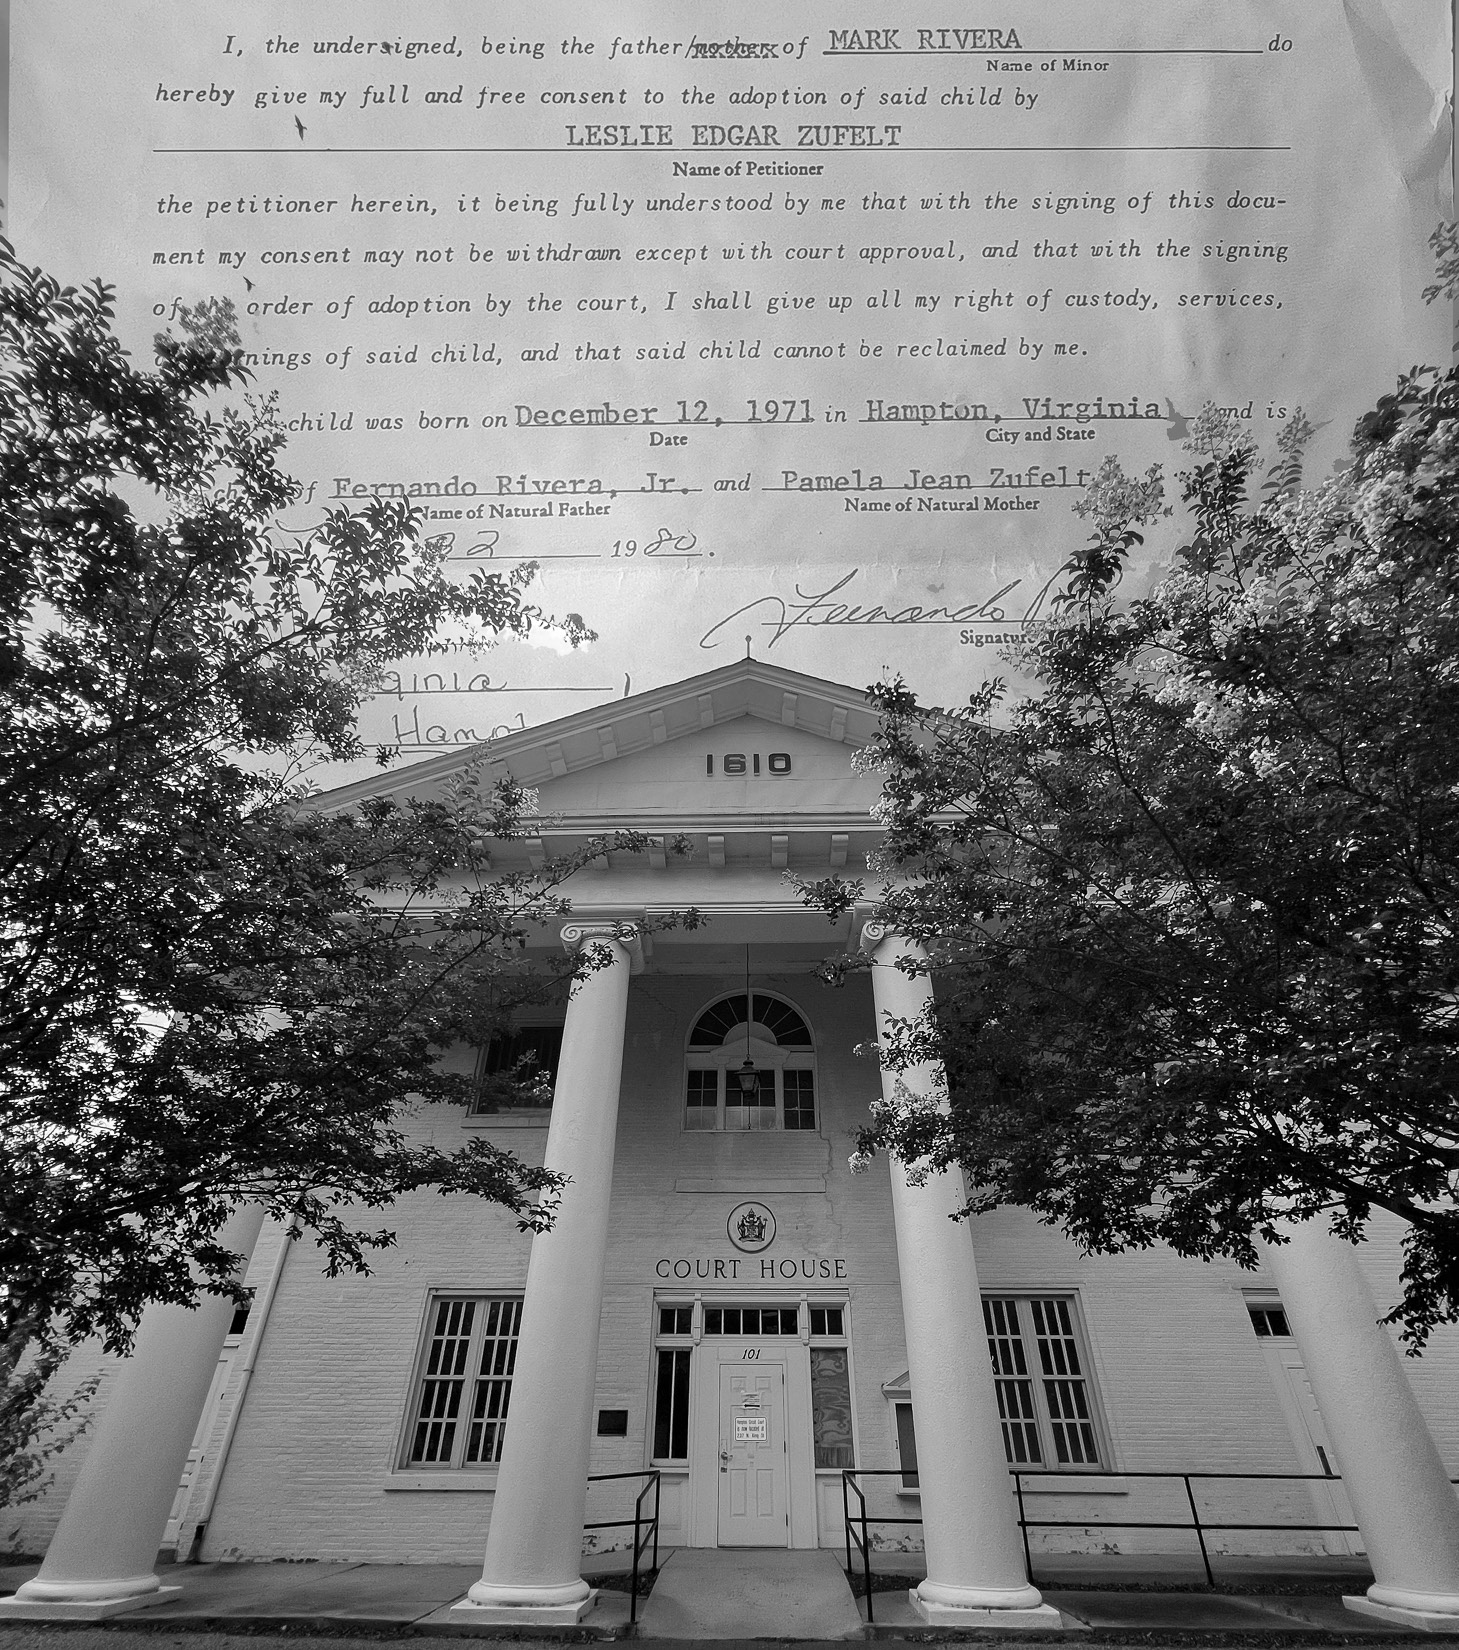 I, the undersigned, being the father/mother of MARK RIVERA do
Name of Minor
hereby give my full and free consent to the adoption of said child by
LESLIE EDGAR ZUFELT
Name of Petitioner
the petitioner herein, it being fully understood by me that with the signing of this docu-
ment my consent may not be withdrawn except with court approval, and that with the signing
of the order of adoption by the court, I shall give up all my right of custody, services,
nings of said child, and that said child cannot be reclaimed by me.
child was born on December 12, 1971 in Hampton, Virginia and is
Date City and State
of Fernando Rivera, Jr. and Pamela Jean Zufelt
Name of Natural Father Name of Natural Mother
22 1980.
Fernando
Signature
ginia
Hampt
1610
COURT HOUSE
101
Hampton Circuit Court
is now located at